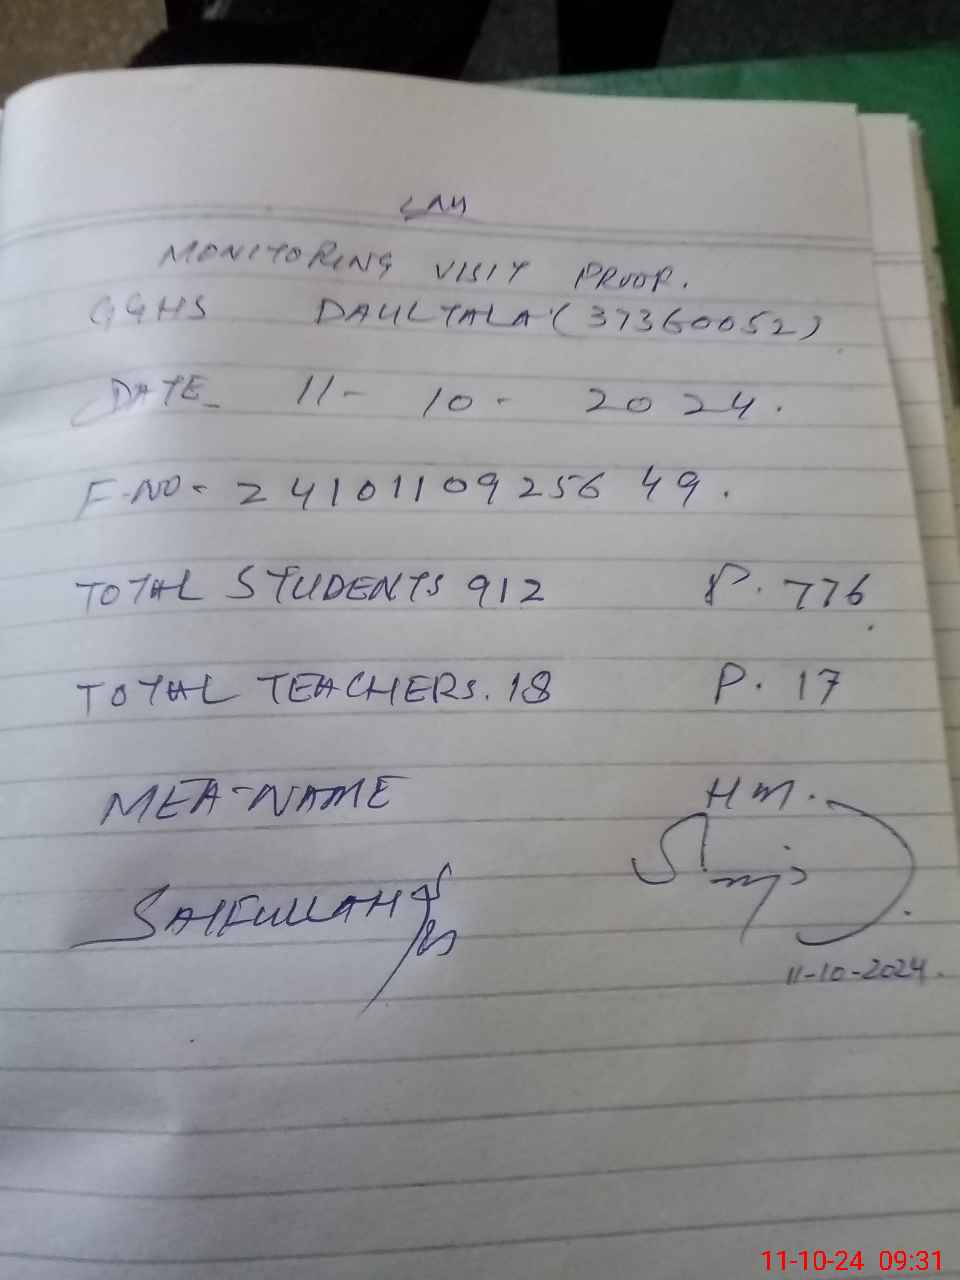 MONITORING VISIT PROOF.
GGHS DAULTALA (37360052)
DATE_ 11- 10- 2024.
F-NO- 2410110925649.
TOTAL STUDENTS 912 P. 776
TOTAL TEACHERS. 18 P. 17
MEA-NAME HM.
SAIFULLAH
11-10-2024.
11-10-24 09:31